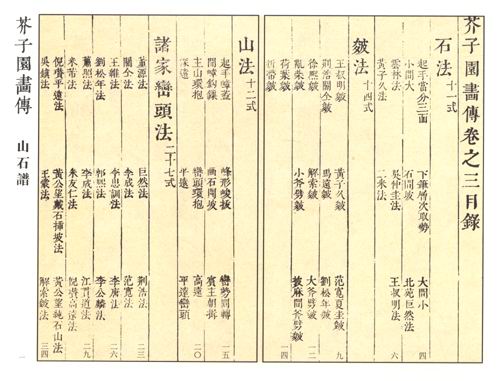 芥子園畫傳卷之三目錄
石法 十一式
起手當分三面 下筆層次取勢 大間小 四
小間大 石間坡 北苑巨然法
雲林法 吳仲圭法 王叔明法 六
黃子久法 二米法
皴法 十四式
王叔明皴 黃子久皴 范寬夏圭皴 九
荊浩關仝皴 馬遠皴 劉松年皴
徐熙皴 解索皴 大斧劈皴 一二
亂柴皴 小斧劈皴 披麻間斧劈皴 一四
荷葉皴
折帶皴
山法 十二式
起手嶂蓋 峰形峻拔 巒勢圓轉 一五
開嶂鈎鎖 賓主朝揖
主山環抱 巒頭環抱 高遠 二〇
深遠 平遠 平遠巒頭
諸家巒頭法 二十七式
董源法 巨然法 荊浩法 二三
關仝法 李成法 范寬法
王維法 李思訓法 李唐法 二六
劉松年法 郭熙法 李公麟法
蕭照法 李成法 江貫道法 二九
米芾法 米友仁法 倪瓚高遠法
倪瓚平遠法 黃公望戴石插坡法 黃公望純石山法
吳鎮法 王蒙法 解索皴法 三四
芥子園畫傳 山石譜 一